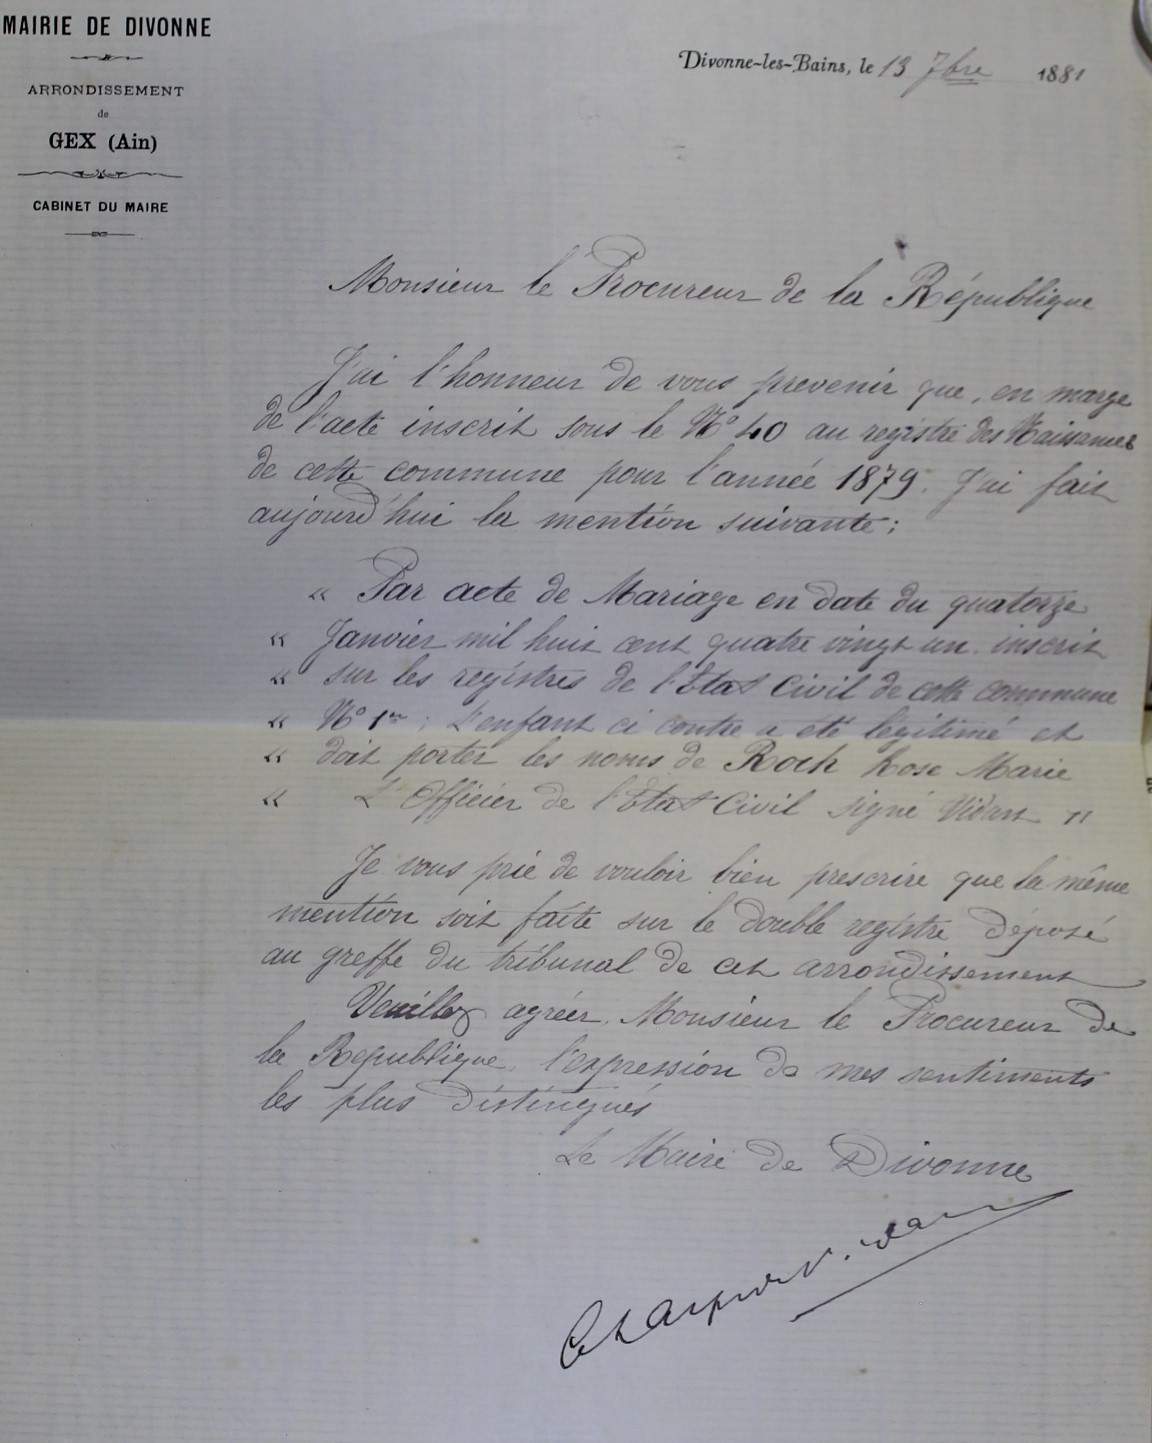 MAIRIE DE DIVONNE
ARRONDISSEMENT
de
GEX (Ain)
CABINET DU MAIRE
Divonne-les-Bains, le 13 7bre 1881
Monsieur le Procureur de la République
J'ai l'honneur de vous prevenir que, en marge
de l'acte inscrit sous le N° 40 au registre des Naissances
de cette commune pour l'année 1879. J'ai fait
aujourd'hui la mention suivante:
« Par acte de Mariage en date du quatorze
« Janvier mil huit cent quatre vingt un inscrit
« sur les registres de l'Etat Civil de cette commune
« N° 1er; L'enfant ci contre a été légitimé et
« doit porter les noms de Roch Rose Marie
« L'Officier de l'Etat Civil signé Vidart »
Je vous prie de vouloir bien prescrire que la même
mention soit faite sur le double registre déposé
au greffe du tribunal de cet arrondissement
Veuillez agréer, Monsieur le Procureur de
la République, l'expression de mes sentiments
les plus distingués
Le Maire de Divonne